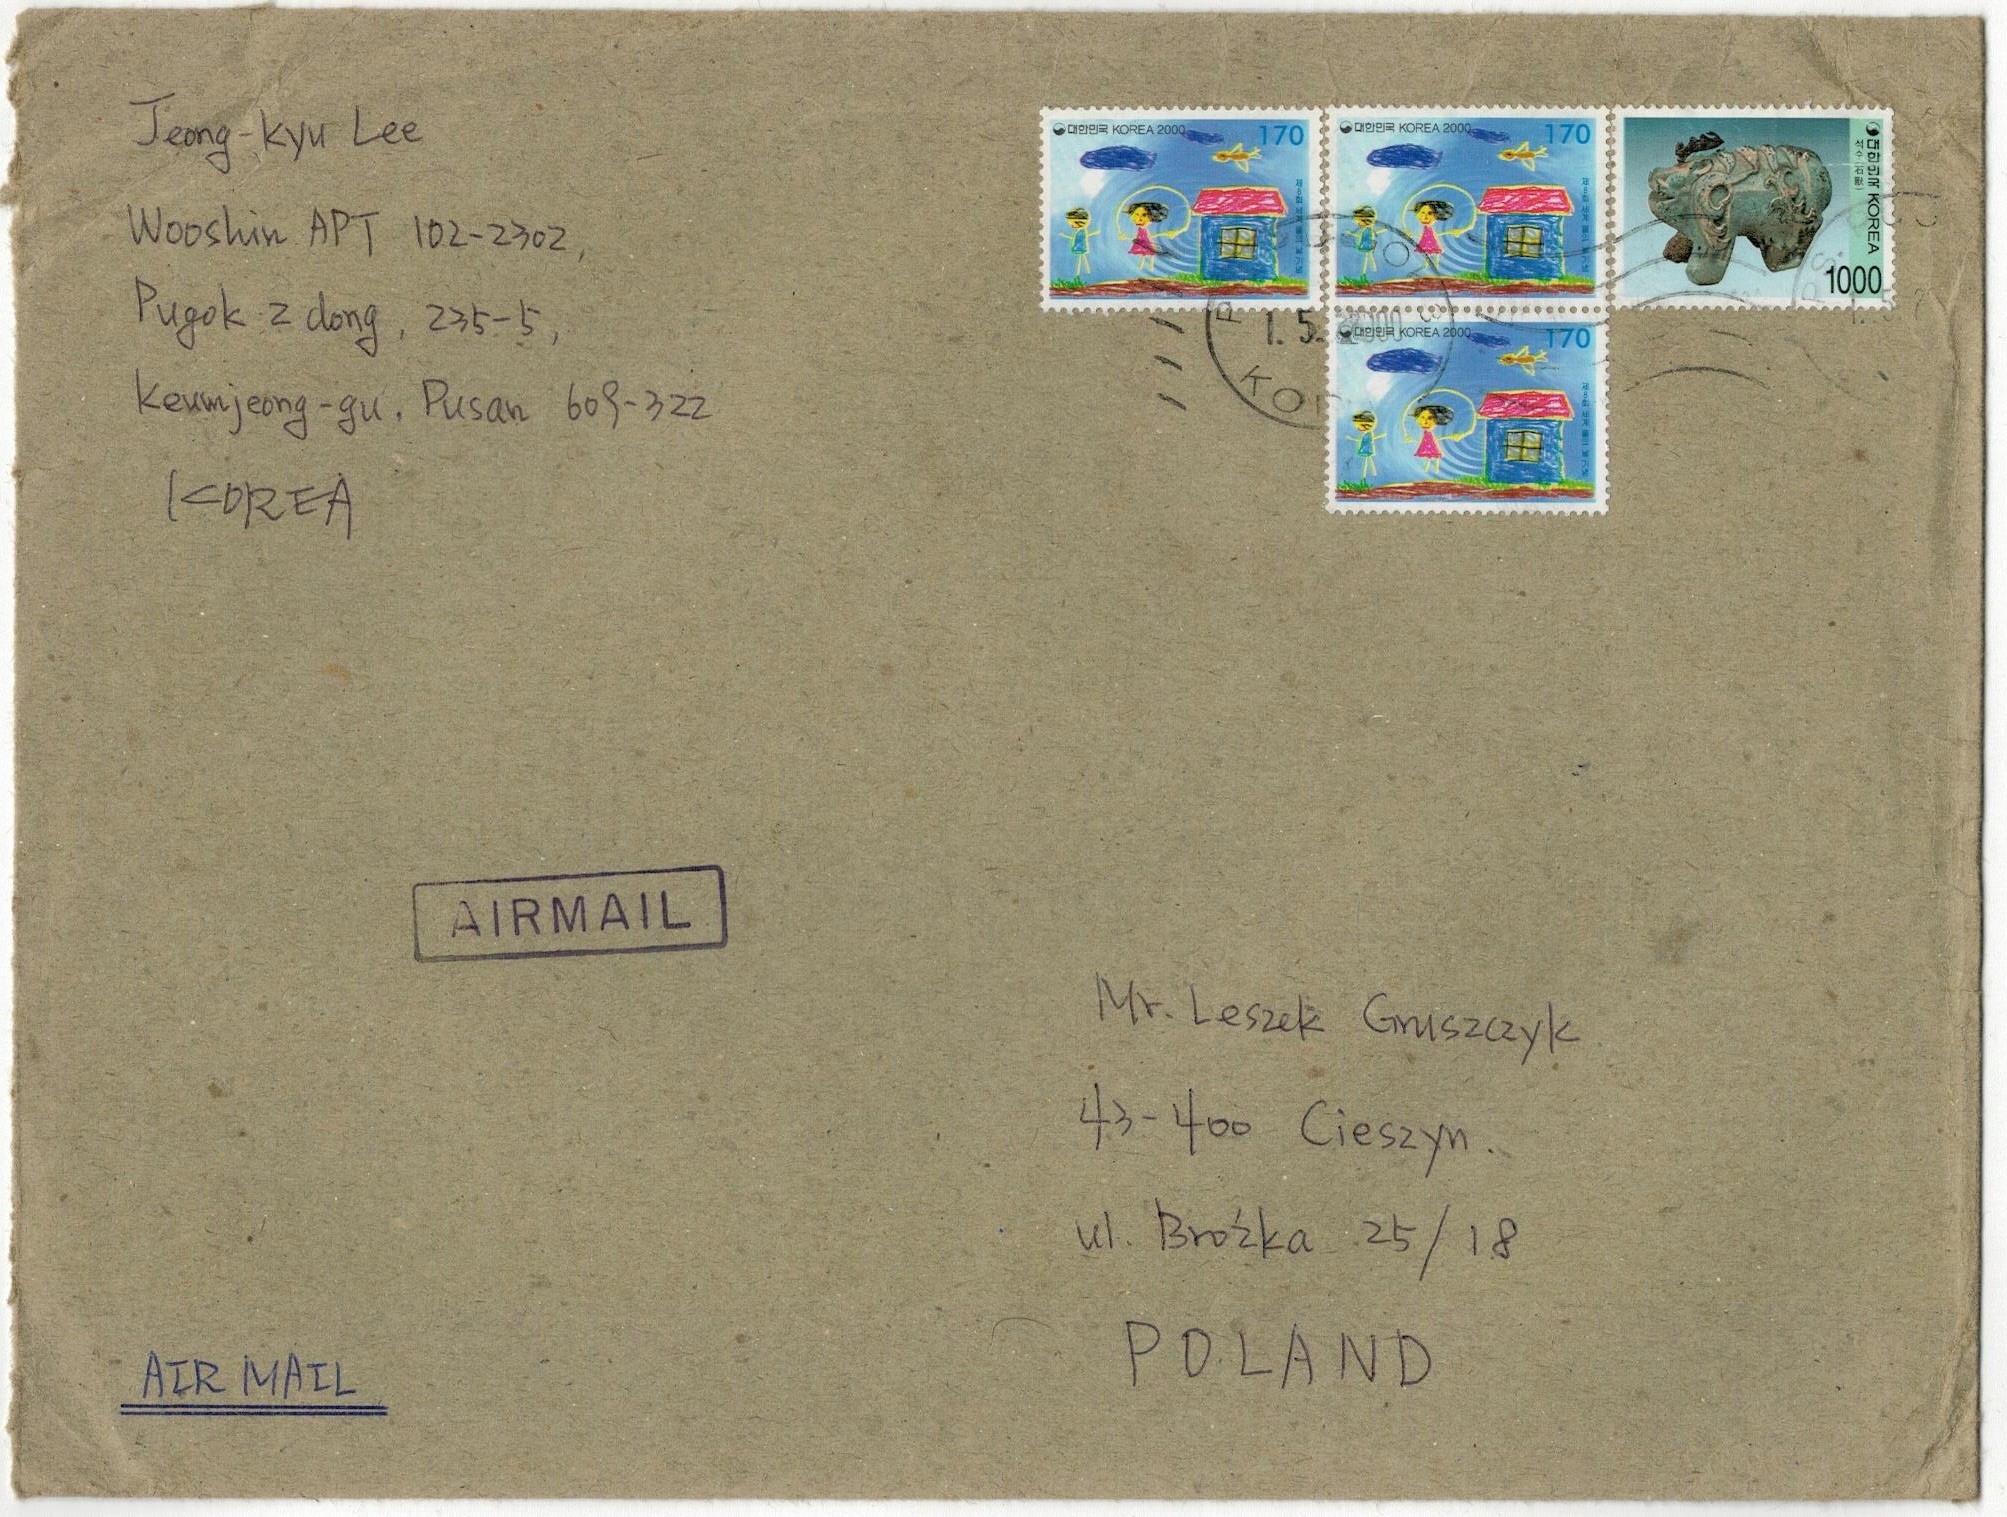 Jeong-kyu Lee
Wooshin APT 102-2302,
Pugok 2 dong, 235-5,
Keumjeong-gu, Pusan 609-322
KOREA
대한민국 KOREA 2000 170
제8회 세계 물의 날 기념
대한민국 KOREA 2000 170
제8회 세계 물의 날 기념
대한민국 KOREA 1000
석수(石獸)
대한민국 KOREA 2000 170
제8회 세계 물의 날 기념
1.5. 2000
AIRMAIL
Mr. Leszek Gruszczyk
43-400 Cieszyn.
ul. Brożka 25/18
POLAND
AIR MAIL